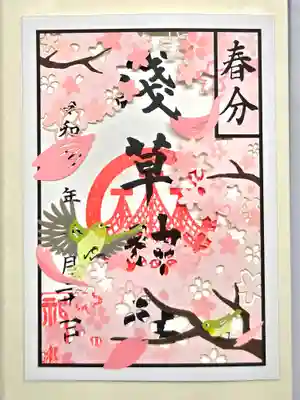 春分
浅草神社
令和 年 月二十日